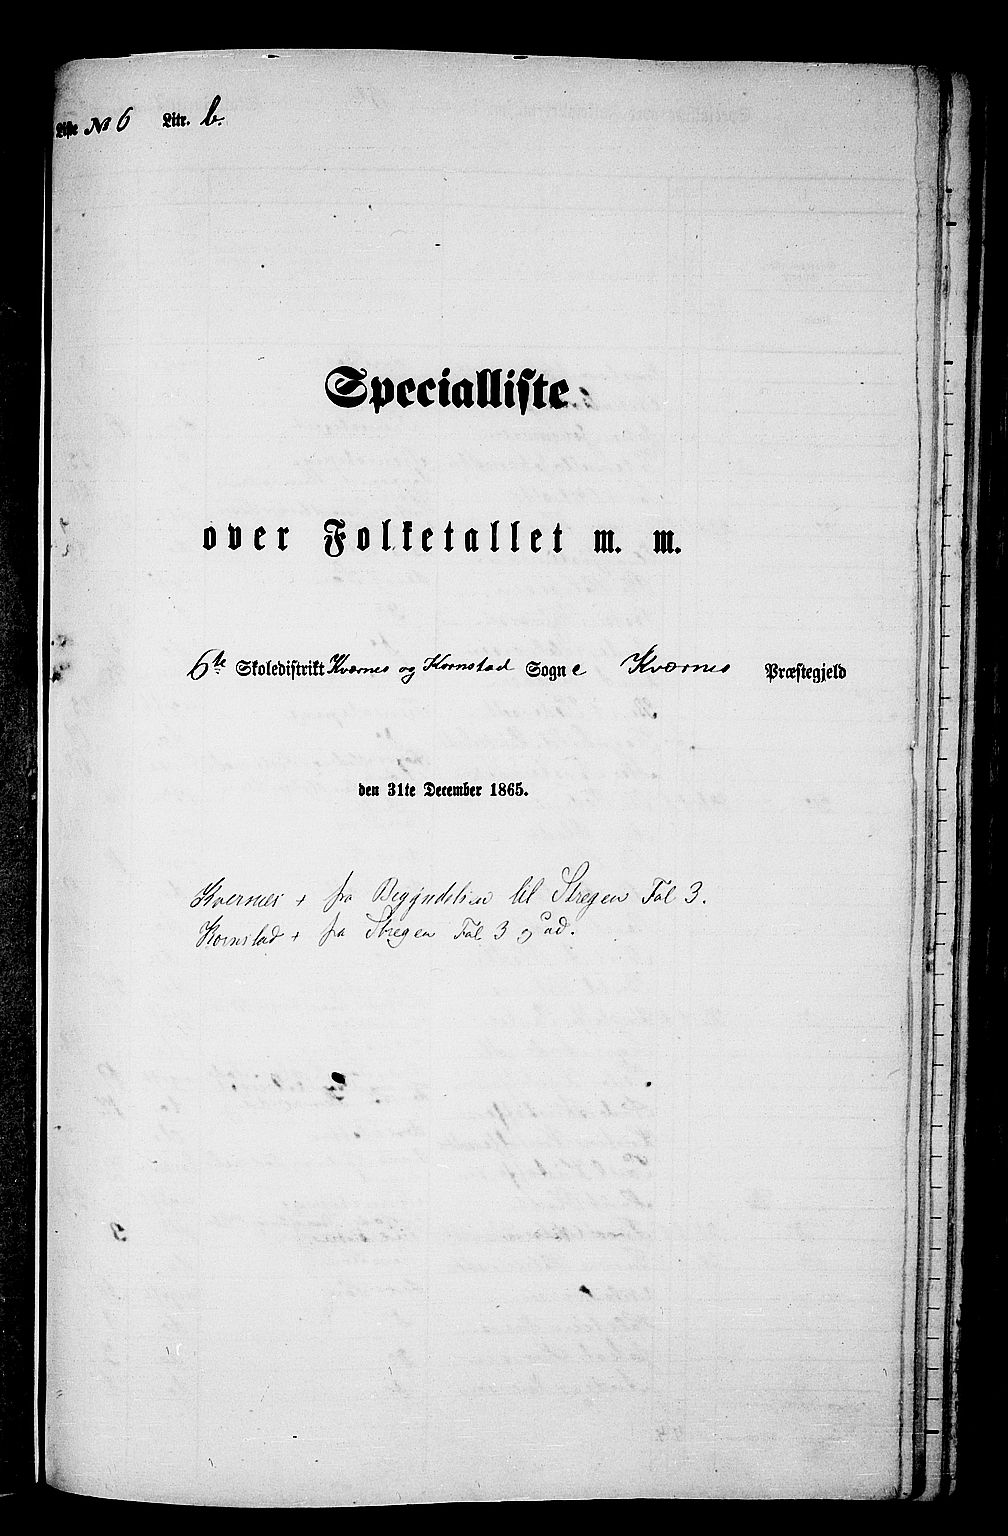 Liste № 6 Litr. b.
Specialliste
over Folketallet m. m.
6te Skoledistrikt Kværnes og Kornstad Sogne Kværnes Præstegjeld
den 31te December 1865.
Kvernes + fra Begyndelsen til Stregen Fol 3.
Kornstad + fra Stregen Fol 3 og ud.